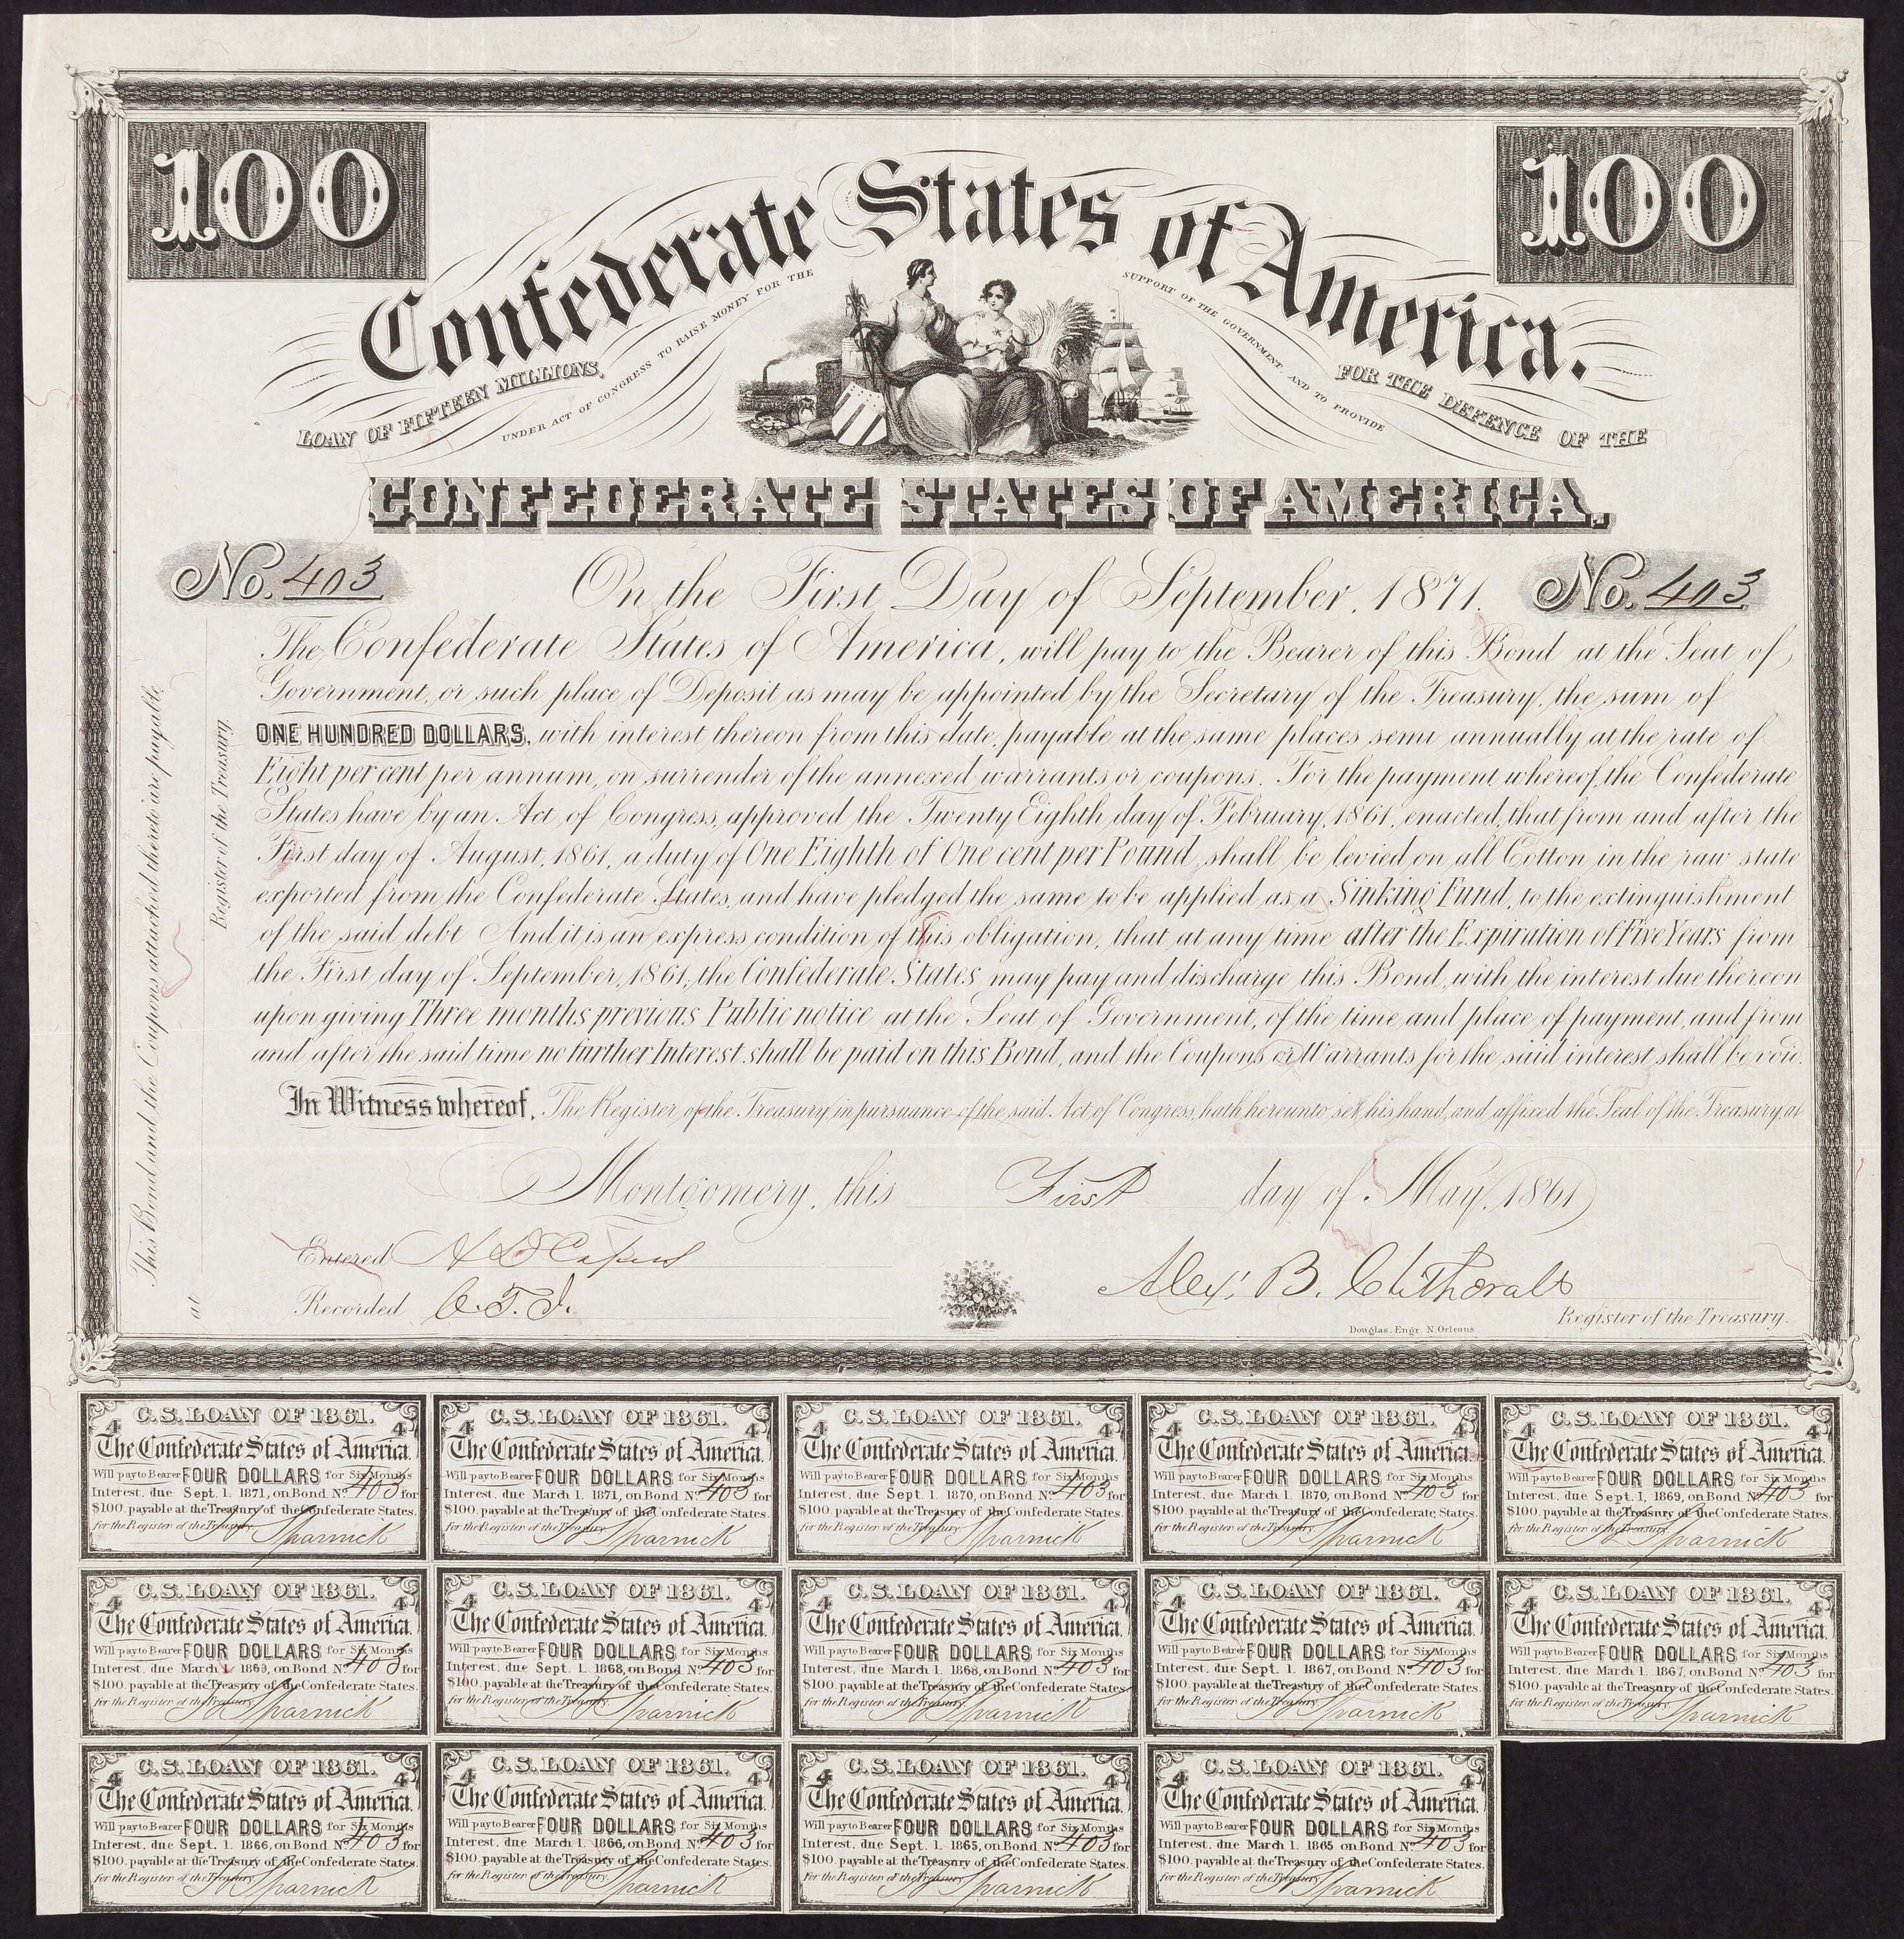 100
100
Confederate States of America.
LOAN OF FIFTEEN MILLIONS,
UNDER ACT OF CONGRESS TO RAISE MONEY FOR THE
SUPPORT OF THE GOVERNMENT AND TO PROVIDE
FOR THE DEFENCE OF THE
CONFEDERATE STATES OF AMERICA,
No. 403
On the First Day of September, 1871.
No. 403
The Confederate States of America, will pay to the Bearer of this Bond at the Seat of
Government, or such place of Deposit as may be appointed by the Secretary of the Treasury, the sum of
ONE HUNDRED DOLLARS, with interest thereon from this date, payable at the same places semi annually at the rate of
Eight per cent per annum, on surrender of the annexed warrants or coupons. For the payment whereof, the Confederate
States have by an Act of Congress, approved the Twenty Eighth day of February, 1861, enacted, that from and after the
First day of August, 1861, a duty of One Eighth of One cent per Pound, shall be levied on all Cotton in the raw state
exported from the Confederate States, and have pledged the same to be applied as a Sinking Fund, to the extinguishment
of the said debt And it is an express condition of this obligation, that at any time after the Expiration of Five Years from
the First day of September, 1861, the Confederate States may pay and discharge this Bond, with the interest due thereon
upon giving Three months previous Public notice at the Seat of Government, of the time and place of payment, and from
and after the said time no further Interest shall be paid on this Bond, and the Coupons or Warrants for the said interest shall be void.
In Witness whereof, The Register of the Treasury, in pursuance of the said Act of Congress, hath hereunto set his hand, and affixed the Seal of the Treasury, at
Montgomery, this First day of May, 1861
Entered
Alex. B. Clitherall
Recorded C. T. J.
Register of the Treasury.
Douglas. Engr. N. Orleans
This Bond and the Coupons attached thereto are payable
at
Register of the Treasury.
C.S. LOAN OF 1861.
4 4
The Confederate States of America.
Will pay to Bearer FOUR DOLLARS for Six Months
Interest, due Sept. 1. 1871, on Bond No. 403 for
$100. payable at the Treasury of the Confederate States.
for the Register of the Treasury
C.S. LOAN OF 1861.
4 4
The Confederate States of America.
Will pay to Bearer FOUR DOLLARS for Six Months
Interest, due March 1. 1871, on Bond No. 403 for
$100. payable at the Treasury of the Confederate States.
for the Register of the Treasury
C.S. LOAN OF 1861.
4 4
The Confederate States of America.
Will pay to Bearer FOUR DOLLARS for Six Months
Interest, due Sept. 1. 1870, on Bond No. 403 for
$100. payable at the Treasury of the Confederate States.
for the Register of the Treasury
C.S. LOAN OF 1861.
4 4
The Confederate States of America.
Will pay to Bearer FOUR DOLLARS for Six Months
Interest, due March 1. 1870, on Bond No. 403 for
$100. payable at the Treasury of the Confederate States.
for the Register of the Treasury
C.S. LOAN OF 1861.
4 4
The Confederate States of America.
Will pay to Bearer FOUR DOLLARS for Six Months
Interest, due Sept. 1, 1869, on Bond No. 403 for
$100. payable at the Treasury of the Confederate States.
for the Register of the Treasury
C.S. LOAN OF 1861.
4 4
The Confederate States of America.
Will pay to Bearer FOUR DOLLARS for Six Months
Interest, due March 1. 1869, on Bond No. 403 for
$100. payable at the Treasury of the Confederate States.
for the Register of the Treasury
C.S. LOAN OF 1861.
4 4
The Confederate States of America.
Will pay to Bearer FOUR DOLLARS for Six Months
Interest, due Sept. 1. 1868, on Bond No. 403 for
$100. payable at the Treasury of the Confederate States.
for the Register of the Treasury
C.S. LOAN OF 1861.
4 4
The Confederate States of America.
Will pay to Bearer FOUR DOLLARS for Six Months
Interest, due March 1. 1868, on Bond No. 403 for
$100. payable at the Treasury of the Confederate States.
for the Register of the Treasury
C.S. LOAN OF 1861.
4 4
The Confederate States of America.
Will pay to Bearer FOUR DOLLARS for Six Months
Interest, due Sept. 1. 1867, on Bond No. 403 for
$100. payable at the Treasury of the Confederate States.
for the Register of the Treasury
C.S. LOAN OF 1861.
4 4
The Confederate States of America.
Will pay to Bearer FOUR DOLLARS for Six Months
Interest, due March 1. 1867, on Bond No. 403 for
$100. payable at the Treasury of the Confederate States.
for the Register of the Treasury
C.S. LOAN OF 1861.
4 4
The Confederate States of America.
Will pay to Bearer FOUR DOLLARS for Six Months
Interest, due Sept. 1. 1866, on Bond No. 403 for
$100. payable at the Treasury of the Confederate States.
for the Register of the Treasury
C.S. LOAN OF 1861.
4 4
The Confederate States of America.
Will pay to Bearer FOUR DOLLARS for Six Months
Interest, due March 1. 1866, on Bond No. 403 for
$100. payable at the Treasury of the Confederate States.
for the Register of the Treasury
C.S. LOAN OF 1861.
4 4
The Confederate States of America.
Will pay to Bearer FOUR DOLLARS for Six Months
Interest, due Sept. 1. 1865, on Bond No. 403 for
$100. payable at the Treasury of the Confederate States.
for the Register of the Treasury
C.S. LOAN OF 1861.
4 4
The Confederate States of America.
Will pay to Bearer FOUR DOLLARS for Six Months
Interest, due March 1. 1865 on Bond No. 403 for
$100. payable at the Treasury of the Confederate States.
for the Register of the Treasury